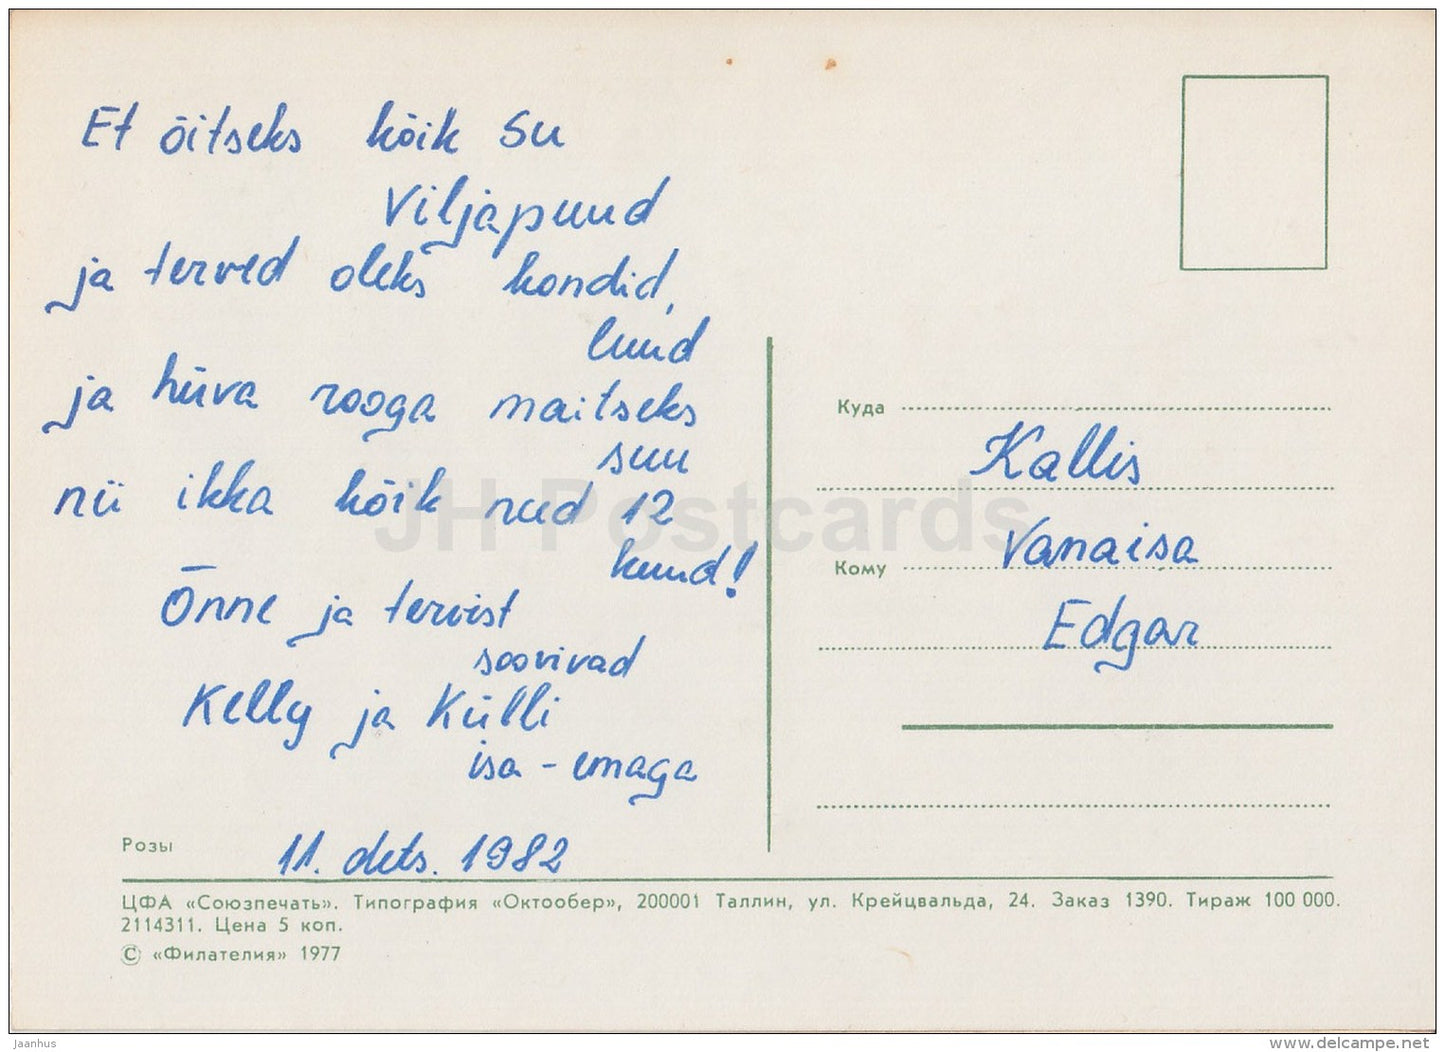 Et õitseks kõik Su
Viljapuud
ja terved oleks kondid,
luud
ja hüva rooga maitseks
suu
nii ikka kõik need 12
kuud!
Õnne ja tervist
soovivad
Kelly ja Külli
isa-emaga
11. dets. 1982
Куда
Kallis
Vanaisa
Кому
Edgar
JH Postcards
Розы
ЦФА «Союзпечать». Типография «Октообер», 200001 Таллин, ул. Крейцвальда, 24. Заказ 1390. Тираж 100 000.
2114311. Цена 5 коп.
© «Филателия» 1977
jaanhus
delcampe.net